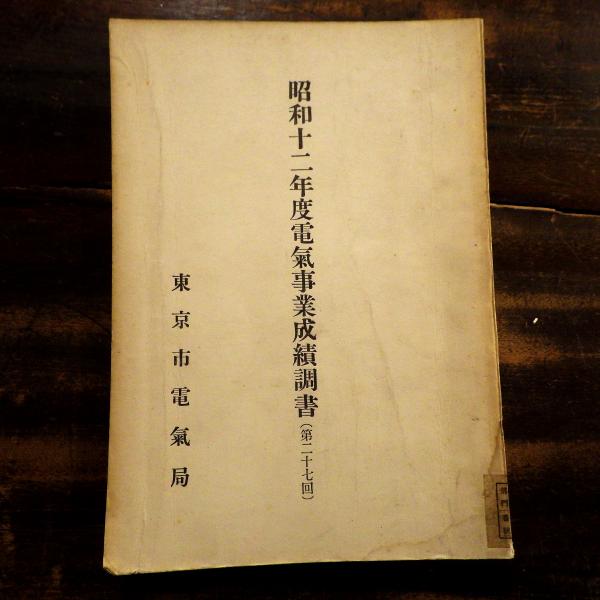 昭和十二年度電氣事業成績調書(第二十七回)
東京市電氣局